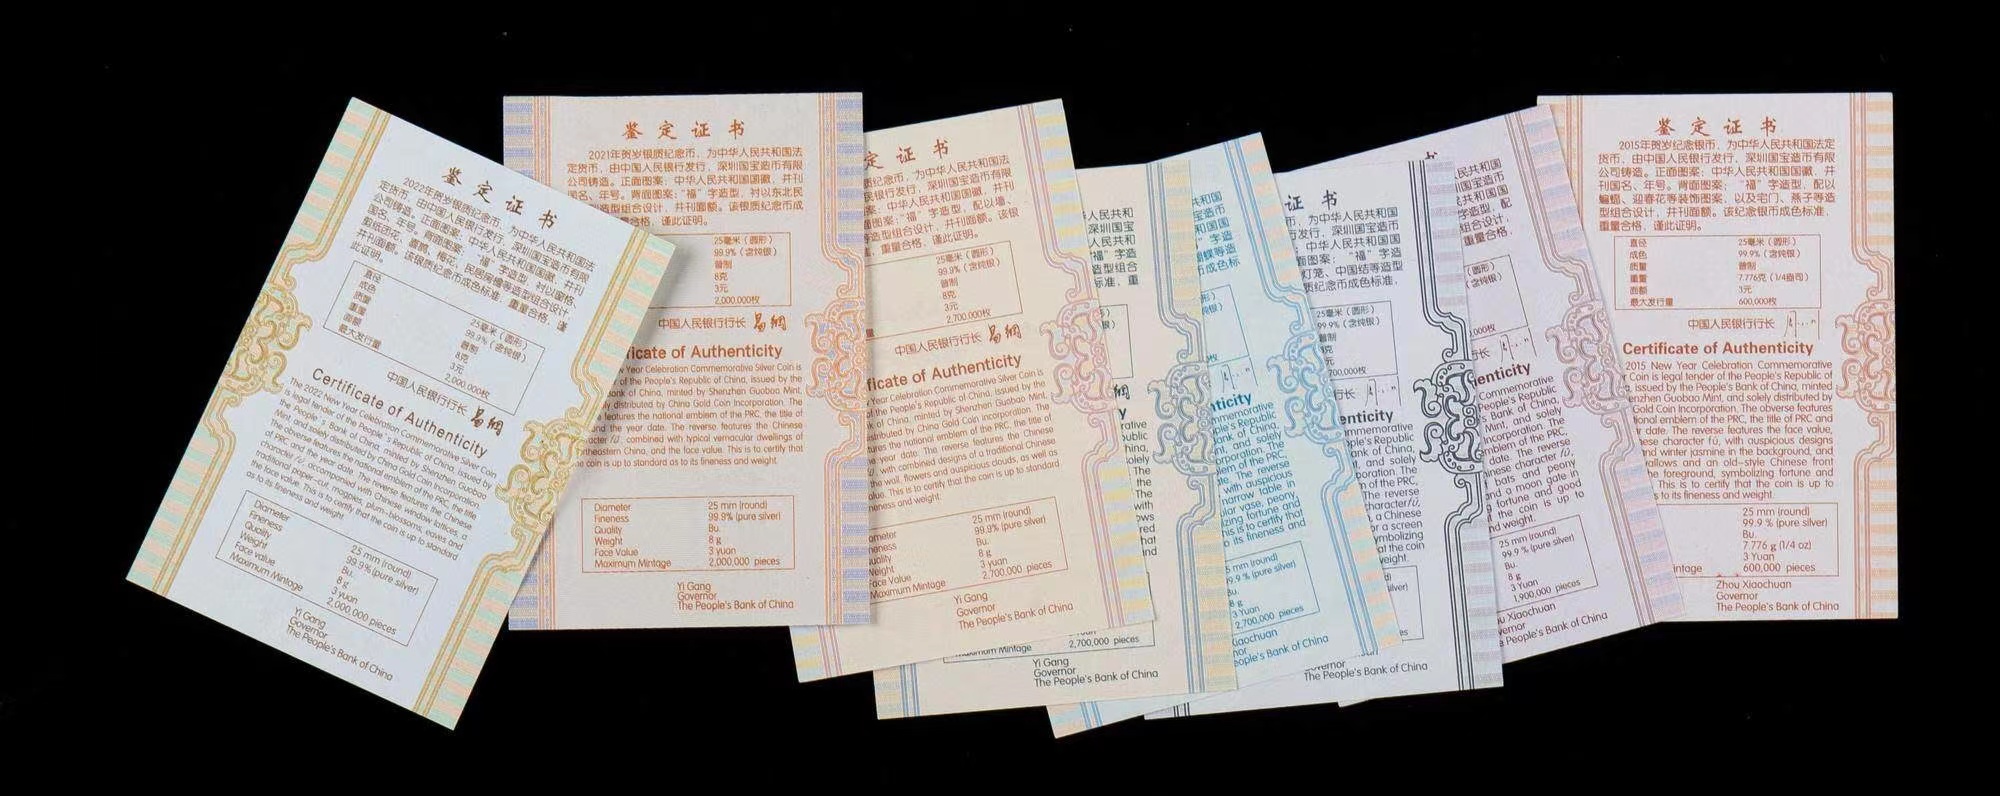 鉴定证书
2022年贺岁银质纪念币，为中华人民共和国法
定货币，由中国人民银行发行，深圳国宝造币有限
公司铸造。正面图案：中华人民共和国国徽，并刊
国名、年号。背面图案：“福”字造型，衬以窗格、
剪纸团花、喜鹊、梅花、民居屋檐等造型组合设计，
并刊面额。该银质纪念币成色标准，重量合格，谨
此证明。
直径 25毫米（圆形）
成色 99.9%（含纯银）
质量 普制
重量 8克
面额 3元
最大发行量 2,000,000枚
中国人民银行行长 易纲
Certificate of Authenticity
The 2022 New Year Celebration Commemorative Silver Coin
is legal tender of the People's Republic of China, issued by
the People's Bank of China, minted by Shenzhen Guobao
Mint, and solely distributed by China Gold Coin Incorporation.
The obverse features the national emblem of the PRC, the title
of PRC and the year date. The reverse features the Chinese
character fú, accompanied with Chinese window lattices, a
traditional paper-cut, magpies, plum-blossoms, eaves and
the face value. This is to certify that the coin is up to standard
as to its fineness and weight.
Diameter 25 mm (round)
Fineness 99.9% (pure silver)
Quality Bu.
Weight 8 g
Face value 3 yuan
Maximum Mintage 2,000,000 pieces
Yi Gang
Governor
The People's Bank of China
鉴定证书
2021年贺岁银质纪念币，为中华人民共和国法
定货币，由中国人民银行发行，深圳国宝造币有限
公司铸造。正面图案：中华人民共和国国徽，并刊
国名、年号。背面图案：“福”字造型，衬以东北民
造型组合设计，并刊面额。该银质纪念币成
合格，谨此证明。
25毫米（圆形）
99.9%（含纯银）
普制
8克
3元
2,000,000枚
中国人民银行行长 易纲
ficate of Authenticity
Year Celebration Commemorative Silver Coin is
of the People's Republic of China, issued by the
of China, minted by Shenzhen Guobao Mint,
distributed by China Gold Coin Incorporation. The
features the national emblem of the PRC, the title of
and the year date. The reverse features the Chinese
fú, combined with typical vernacular dwellings of
northeastern China, and the face value. This is to certify that
the coin is up to standard as to its fineness and weight.
Diameter 25 mm (round)
Fineness 99.9% (pure silver)
Quality Bu.
Weight 8 g
Face Value 3 yuan
Maximum Mintage 2,000,000 pieces
Yi Gang
Governor
The People's Bank of China
定证书
质纪念币，为中华人民共和国法
民银行发行，深圳国宝造币有限
案：中华人民共和国国徽，并刊
案：“福”字造型，配以墙、
造型组合设计，并刊面额。该银
，重量合格，谨此证明。
25毫米（圆形）
99.9%（含纯银）
普制
8克
3元
2,700,000枚
中国人民银行行长 易纲
ficate of Authenticity
Year Celebration Commemorative Silver Coin is
of the People's Republic of China, issued by the
of China, minted by Shenzhen Guobao Mint,
distributed by China Gold Coin Incorporation. The
the national emblem of the PRC, the title of
date. The reverse features the Chinese
with combined designs of a traditional Chinese
the wall, flowers and auspicious clouds, as well as
This is to certify that the coin is up to standard
and weight.
25 mm (round)
99.9% (pure silver)
Bu.
8 g
Face Value 3 yuan
Maximum Mintage 2,700,000 pieces
Yi Gang
Governor
The People's Bank of China
人民共和
深圳国宝
“福”字
造型组合
标准，重
Maximum Mintage 2,700,000 pieces
Yi Gang
Governor
The People's Bank of China
共和国
宝造币
国国
”字造
蝶等造
币成色标
nticity
mmemorative
Republic
of China,
and solely
The
of the PRC,
The reverse
with auspicious
narrow table in
vase, peony,
fortune and
This is to certify that
to its fineness and
5 mm (round)
(pure silver)
Bu.
8 g
3 Yuan
2,700,000 pieces
Xiaochuan
nor
eople's Bank of China
证书
币，为中华人民共和国
发行，深圳国宝造币
中华人民共和国国
面图案：“福”字造
灯笼、中国结等造型
质纪念币成色标准，
25毫米（圆形）
99.9%（含纯银）
普制
8克
3元
700,000枚
行长
enticity
Commemorative
ple's Republic
Bank of China,
and solely
poration. The
of the PRC,
The reverse
character fú,
a Chinese
or a screen
symbolizing
that the coin
weight.
Governor
The People's Bank of China
民共和国
国宝造币
共和国国
字造型，
重量合格，
henticity
Commemorative
People's Republic
Bank of China,
Mint, and solely
Incorporation. The
emblem of the PRC,
date. The reverse
Chinese character fú,
bats and peony
and a moon gate in
fortune and good
the coin is up to
nd weight.
25 mm (round)
99.9 % (pure silver)
Bu.
8 g
3 Yuan
1,900,000 pieces
Xiaochuan
vernor
e People's Bank of China
鉴定证书
2015年贺岁纪念银币，为中华人民共和国法定
货币，由中国人民银行发行，深圳国宝造币有限
公司铸造。正面图案：中华人民共和国国徽，并
刊国名、年号。背面图案：“福”字造型，配以
蝙蝠、迎春花等装饰图案，以及宅门、燕子等造
型组合设计，并刊面额。该纪念银币成色标准，
重量合格，谨此证明。
直径 25毫米（圆形）
成色 99.9%（含纯银）
质量 普制
重量 7.776克（1/4盎司）
面额 3元
最大发行量 600,000枚
中国人民银行行长
Certificate of Authenticity
2015 New Year Celebration Commemorative
Coin is legal tender of the People's Republic of
issued by the People's Bank of China, minted
enzhen Guobao Mint, and solely distributed by
Gold Coin Incorporation. The obverse features
ional emblem of the PRC, the title of PRC and
r date. The reverse features the face value,
ese character fú, with auspicious designs
and winter jasmine in the background, and
allows and an old-style Chinese front
the foreground, symbolizing fortune and
This is to certify that the coin is up to
s to its fineness and weight.
25 mm (round)
99.9 % (pure silver)
Bu.
7.776 g (1/4 oz)
3 Yuan
intage 600,000 pieces
Zhou Xiaochuan
Governor
The People's Bank of China